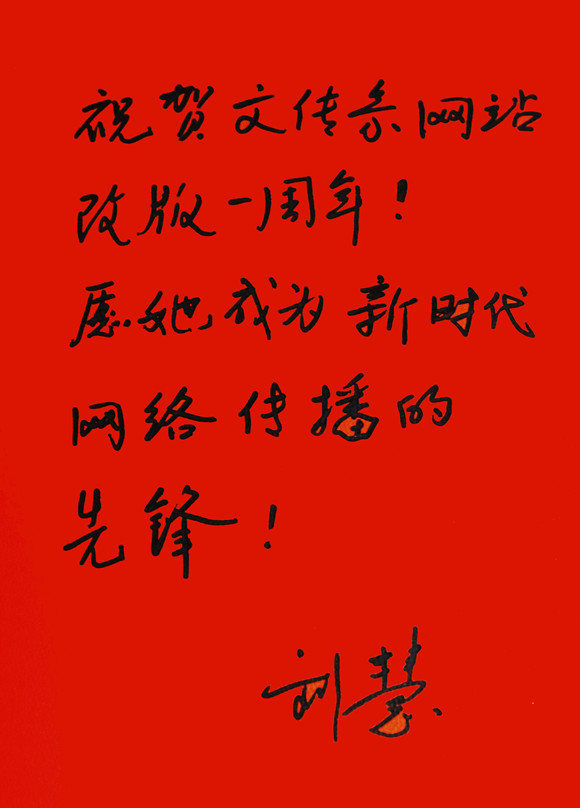 祝贺文传系网站
改版一周年！
愿她成为新时代
网络传播的
先锋！
刘慧